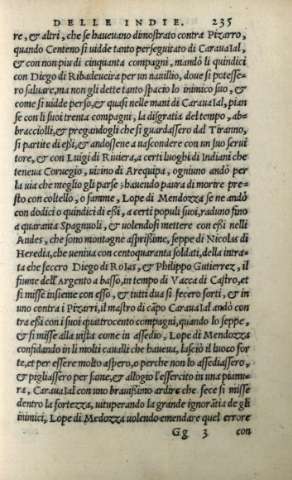 DELLE INDIE. 235
re, & altri, che se haueuano dimostrato contra Pizarro,
quando Centeno si uidde tanto perseguitato di Carauaial,
& con non piu di cinquanta compagni, mandò li quindici
con Diego di Ribadeueira per un nauilio, doue si potesse-
ro saluare, ma non gli dette tanto spacio lo inimico suo, &
come si uidde perso, & quasi nelle mani di Carauaial, pian
se con li suoi trenta compagni, la disgratia del tempo, ab-
bracciolli, & pregandogli che si guardassero dal Tiranno,
si partite di essi, & andossene a nascondere con un suo serui
tore, & con Luigi di Riuiera, a certi luoghi di Indiani che
teneua Coruegio, uicino di Arequipa, ogniuno andò per
la uia che meglio gli parse, hauendo paura di morire pre-
sto con coltello, o famme, Lope di Mendozza se ne andò
con dodici o quindici di essi, a certi populi suoi, raduno fino
a quaranta Spagnuoli, & uolendosi mettere con essi nelli
Andes, che sono montagne asprissime, seppe di Nicolas di
Heredia, che ueniua con centoquaranta soldati, della intra-
ta che fecero Diego di Roias, & Philippo Gutierrez, il
fiume dell'Argento a basso, in tempo di Vacca di Castro, et
si misse insieme con esso, & tutti dua si fecero forti, & in
uno contra i Pizarri, il mastro di cãpo Carauaial andò con
tra essi con i suoi quattrocento compagni, quando lo seppe,
& si misse alla uista come in assedio, Lope di Mendozza
confidando in li molti caualli che haueua, lasciò il luoco for
te, et per essere molto aspero, o perche non lo assediassero,
& pigliassero per fame, & allogio l'essercito in una pianu-
ra, Carauaial con uno brauissimo ardire che fece si misse
dentro la fortezza, uituperando la grande ignorãtia de gli
inimici, Lope di Medozza uolendo emendare quel errore
Gg 3 con